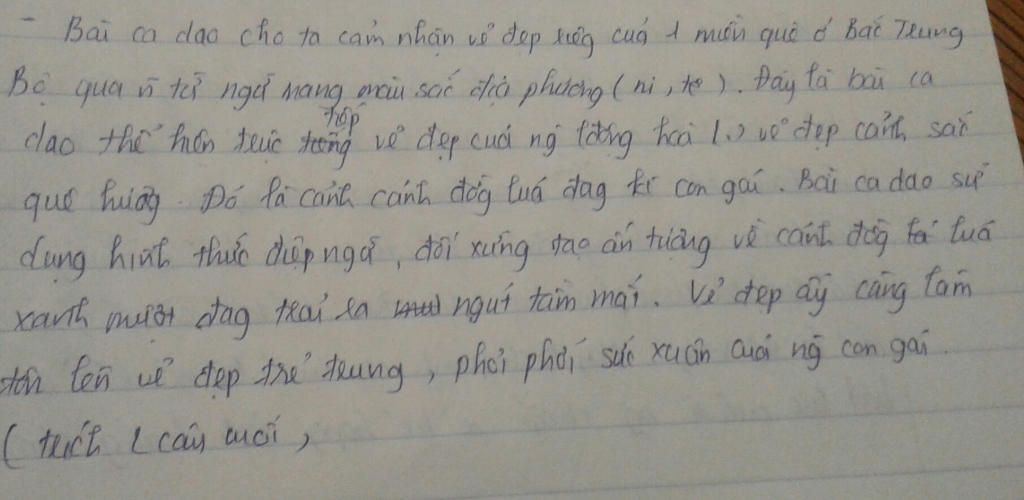 - Bài ca dao cho ta cảm nhận vẻ đẹp riêng của 1 miền quê ở Bắc Trung
Bộ qua n~ từ ngữ mang màu sắc địa phương (ni, tê). Đây là bài ca
dao thể hiện trực tiếp vẻ đẹp của ng lđộng hoà (.) vẻ đẹp cảnh sắc
quê hương. Đó là cảnh cánh đồg luá đag kì con gái. Bài ca dao sử
dụng hình thức điệp ngữ, đối xứng tạo ấn tượng về cánh đồg luá
xanh mướt đag trải ra ngút tầm mắt. Vẻ đẹp ấy càng làm
tôn lên vẻ đẹp trẻ trung, phơi phới sức xuân của ng con gái.
(trích 2 câu cuối)